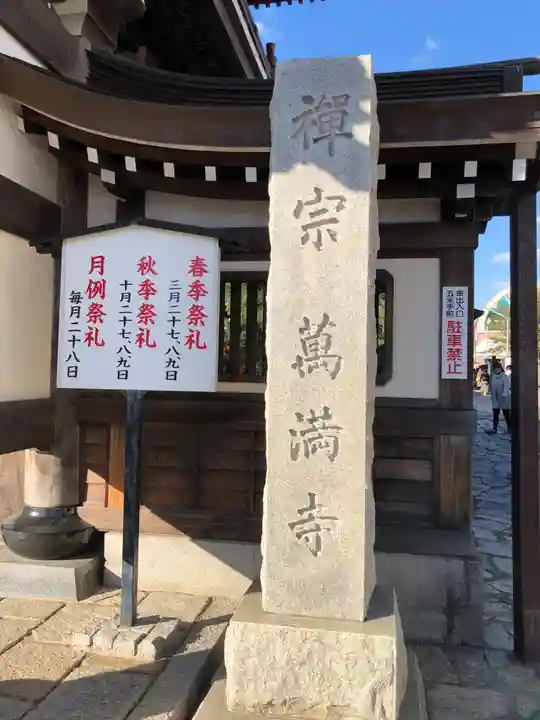 禪宗萬満寺
春季祭礼
三月二十七、八、九日
秋季祭礼
十月二十七、八、九日
月例祭礼
毎月二十八日
駐車禁止